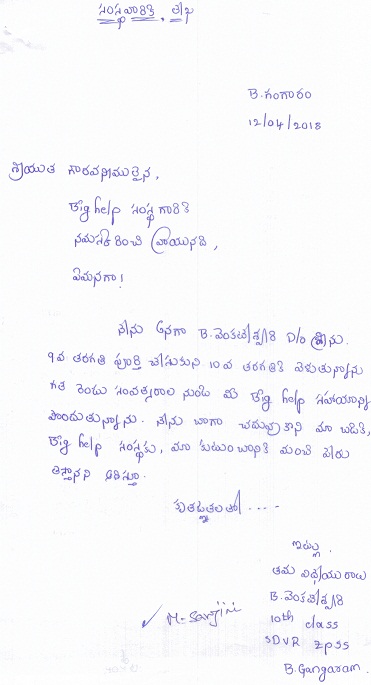 సంస్థవారికి, లేఖ
B.గంగారం
12/04/2018
శ్రీయుత గౌరవనీయులైన,
Big help సంస్థ గారికి
నమస్కరించి వ్రాయునది,
ఏమనగా!
నేను అనగా B.వెంకటేశ్వరి D/o శ్రీను.
9వ తరగతి పూర్తి చేసుకుని 10వ తరగతికి వెళుతున్నాను
గత రెండు సంవత్సరాల నుండి మీ Big help సహాయాన్ని
పొందుతున్నాను. నేను బాగా చదువుకొని మా బడికి,
Big help సంస్థకు, మా కుటుంబానికి మంచి పేరు
తెస్తానని ఆశిస్తూ.
కృతజ్ఞతలతో ....
ఇట్లు.
తమ విధేయురాలు
B.వెంకటేశ్వరి
10th class
SDVR ZPSS
B.Gangaram.